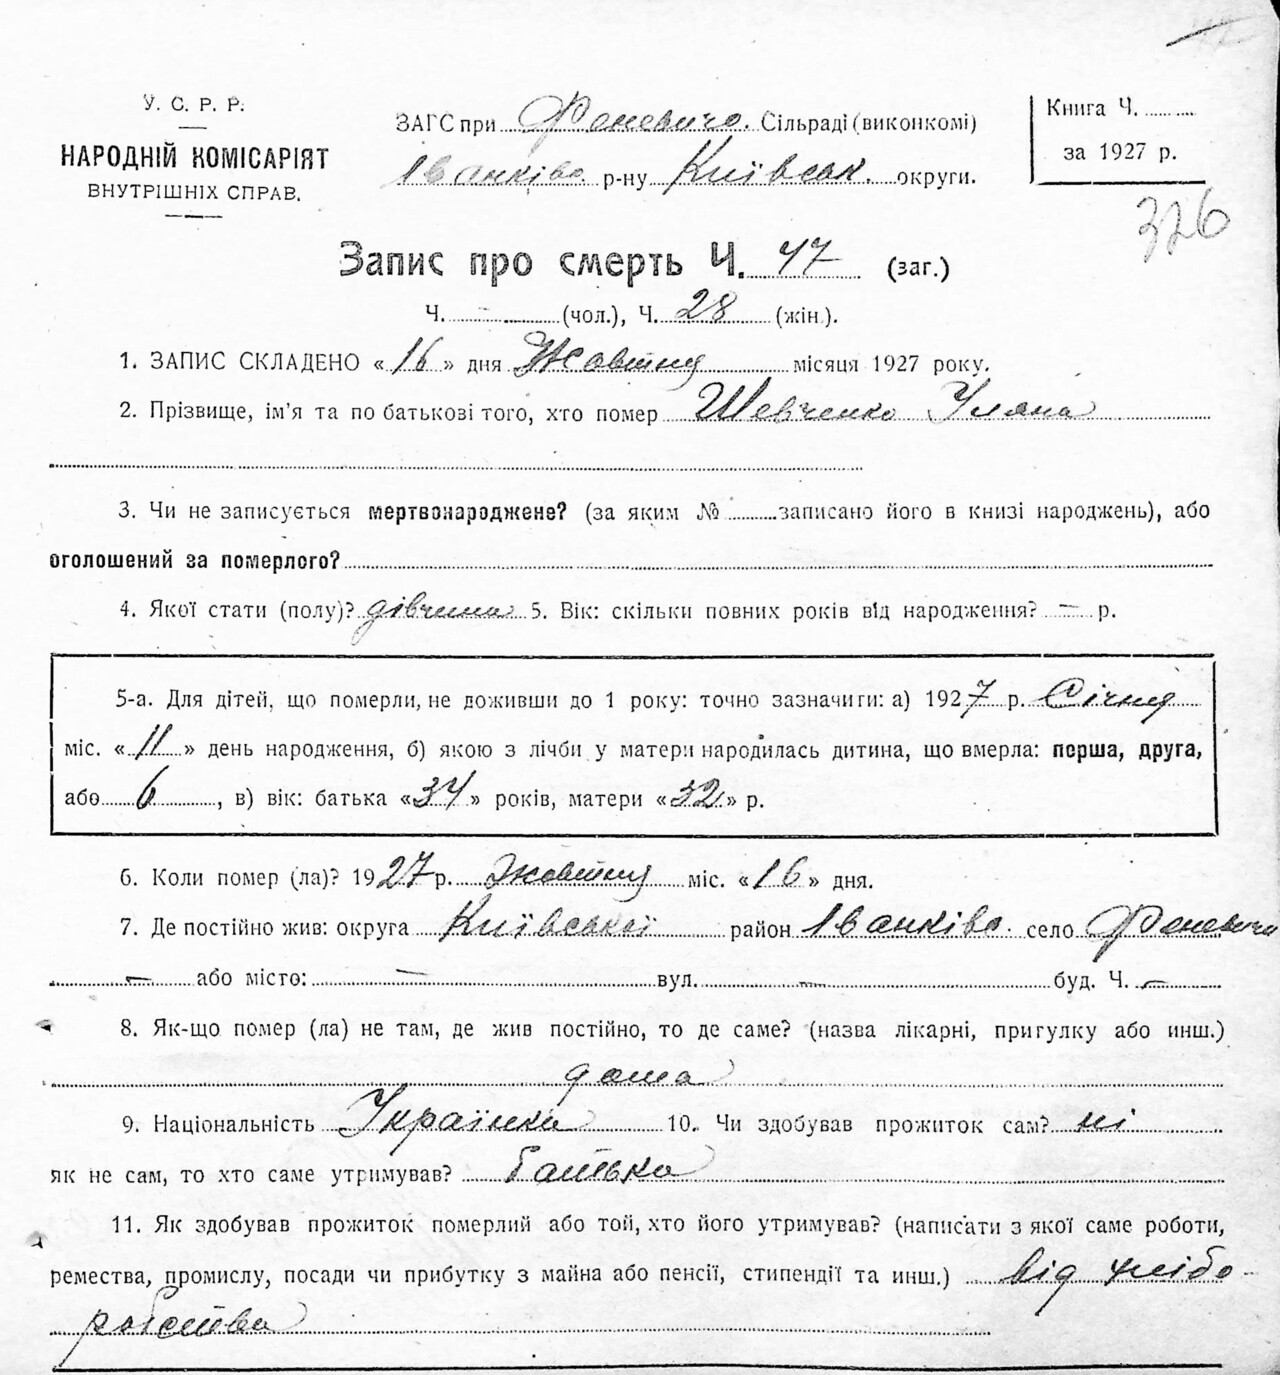 У. С. Р. Р.
НАРОДНІЙ КОМІСАРІЯТ
ВНУТРІШНІХ СПРАВ.
ЗАГС при Феневичс. Сільраді (виконкомі)
Іванківс. р-ну Київськ. округи.
Книга Ч. ....
за 1927 р.
326
Запис про смерть Ч. 47 (заг.)
Ч. - (чол.), Ч. 28 (жін.).
1. ЗАПИС СКЛАДЕНО «16» дня Жовтня місяця 1927 року.
2. Прізвище, ім'я та по батькові того, хто помер Шевченко Уляна
3. Чи не записується мертвонароджене? (за яким № .... записано його в книзі народжень), або
оголошений за померлого?
4. Якої стати (полу)? дівчина 5. Вік: скільки повних років від народження? — р.
5-а. Для дітей, що померли, не доживши до 1 року: точно зазначити: а) 1927 р. Січня
міс. «11» день народження, б) якою з лічби у матери народилась дитина, що вмерла: перша, друга,
або 6, в) вік: батька «34» років, матери «32» р.
6. Коли помер (ла)? 1927 р. Жовтня міс. «16» дня.
7. Де постійно жив: округа Київської район Іванківс. село Феневичи
— або місто: — вул. — буд. Ч. —
8. Як-що помер (ла) не там, де жив постійно, то де саме? (назва лікарні, пригулку або инш.)
дома
9. Національність Українка 10. Чи здобував прожиток сам? ні
як не сам, то хто саме утримував? батько
11. Як здобував прожиток померлий або той, хто його утримував? (написати з якої саме роботи,
ремества, промислу, посади чи прибутку з майна або пенсії, стипендії та инш.) від хлібо-
робства